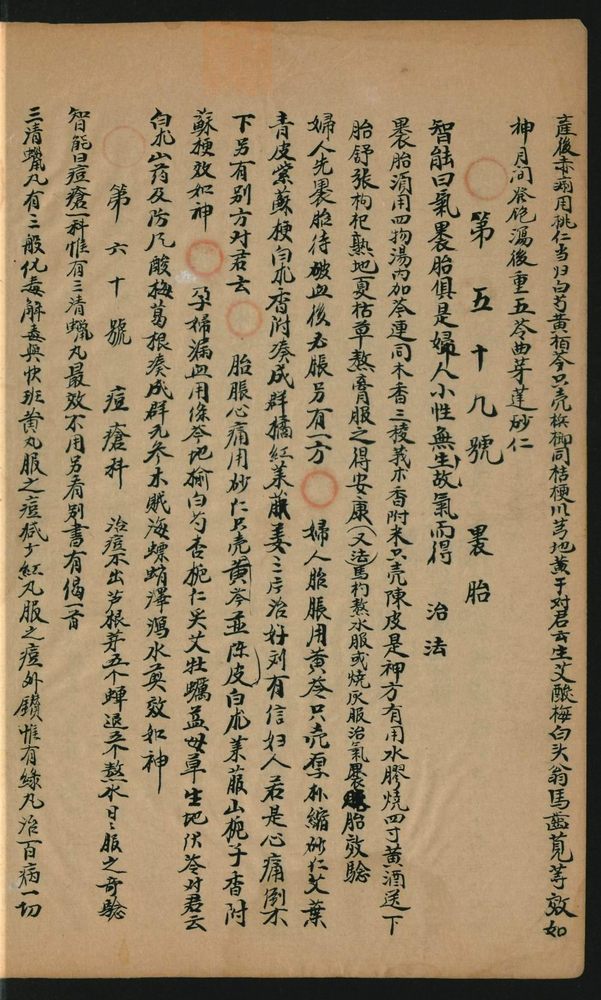 產後赤痢用桃仁当归白芍黄栢芩只壳梹榔同桔梗川芎地黄干对君云生艾酸梅白头翁馬齒莧等效如
神月间發飽瀉後重五苓曲芽蓮砂仁
第五十九號 裹胎
智能曰氣裹胎俱是婦人小性無生故氣而得 治法
裹胎湏用四物湯内加芩連同木香三棱莪朮香附米只壳陳皮是神方有用水膠燒四寸黄酒送下
胎舒張枸杞熟地夏枯草熬膏服之得安康(又法馬杓熬水服或燒灰服治氣裹胎效驗
婦人先裹胎待破血後右脹另有一方 婦人胎脹用黄芩只壳厚朴縮砂仁艾葉
青皮紫蘇梗白朮香附凑成群橘紅萊菔姜三片治好刘有信妇人若是心痛倒不
下另有别方对君云 胎脹心痛用砂仁只壳黄芩並陈皮白朮萊菔山梔子香附
蘇梗效如神 孕婦漏血用條芩地榆白芍杏梔仁炙艾牡蠣益母草生地伏苓对君云
白朮山药及防风酸梅葛根凑成群元参木贼海螵蛸澤瀉水煎效如神
第六十號 痘瘡科 治痘不出芦根芽五个蝉退六个熬水日日服之奇驗
智能曰痘瘡一科惟有三清蠟丸最效不用另看别書有偈一首
三清蠟丸有三般化毒解毒與快班黄丸服之痘减少紅丸服之痘外鑽惟有綠丸治百病一切